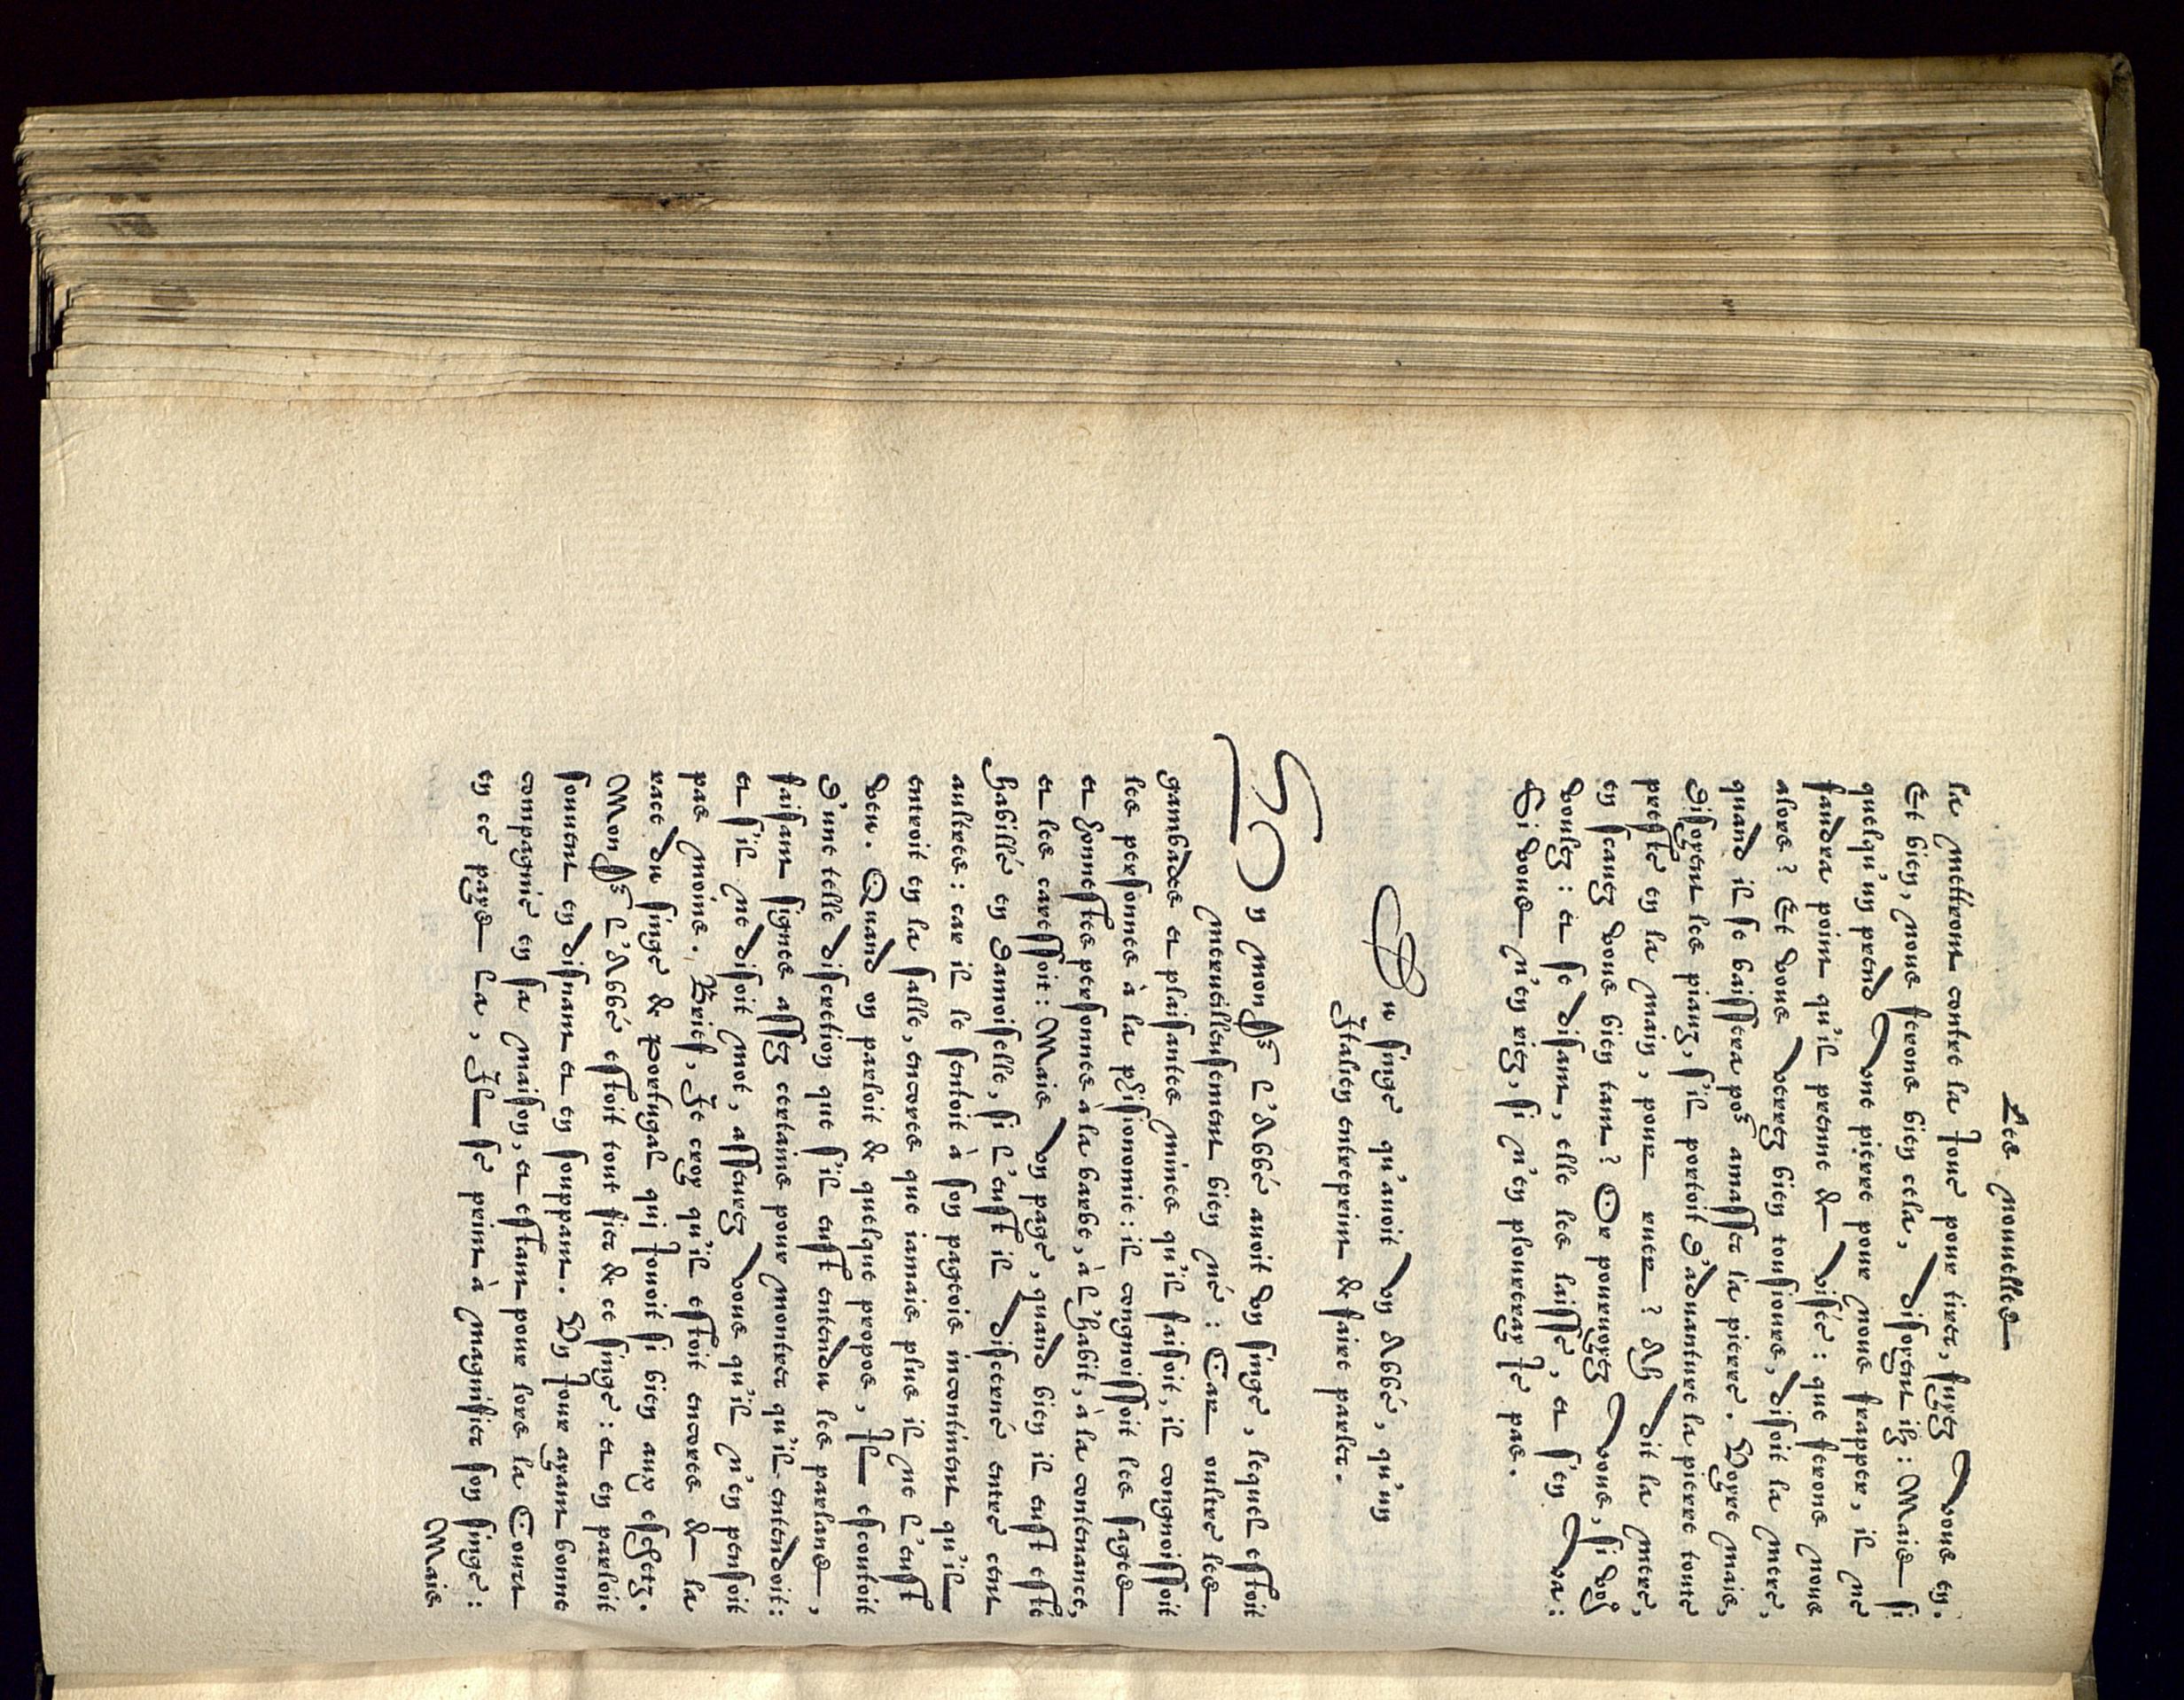 Les nouuelles
la mettront contre la joue pour tirer, fuyez vous en.
Et bien, nous ferons bien cela, disoyent ilz: Mais si
quelqu'un prend vne pierre pour nous frapper, il ne
faudra point qu'il prenne & visée: que ferons nous
alors? Et vous verrez bien tousiours, disoit la mere,
quand il se baissera poʳ amasser la pierre. Voyre mais,
disoyent les piauz, s'il portoit d'aduanture la pierre toute
preste en la main, pour ruer? Ah dit la mere,
en scauez vous bien tant? Or pouruoyez vous, si voꝰ
voulez: et se disant, elle les laisse, et s'en va:
Si vous n'en riez, si n'en ploureray je pas.
Du singe qu'auoit vn Abbé, qu'un
Italien entreprint & faire parler.
Un monsʳ l'Abbé auoit vn singe, lequel estoit
merueilleusement bien né: Car oultre les
gambades et plaisantes mines qu'il faisoit, il congnoissoit
les personnes à la phisionomie: il congnoissoit les sages
et honnestes personnes à la barbe, à l'habit, à la contenance,
et les caressoit: Mais vn page, quand bien il eust esté
habillé en damoiselle, si l'eust il discerné entre cent
aultres: car il le sentoit à son pageois incontinent qu'il
entroit en la salle, encores que iamais plus il ne l'eust
veu. Quand on parloit & quelque propos, Il escoutoit
d'une telle discretion que s'il eust entendu les parlans,
faisant signes assez certains pour monstrer qu'il entendoit:
et s'il ne disoit mot, asseurez vous qu'il n'en pensoit
pas moins. Brief, Je croy qu'il estoit encores & la
race du singe & portugal qui jouoit si bien aux eschetz.
Monsʳ l'Abbé estoit tout fier & ce singe: et en parloit
souuent en disnant et en souppant. Vn jour ayant bonne
compagnie en sa maison, et estant pour lors la Court
en ce pays la, Il se print à magnifier son singe:
Mais